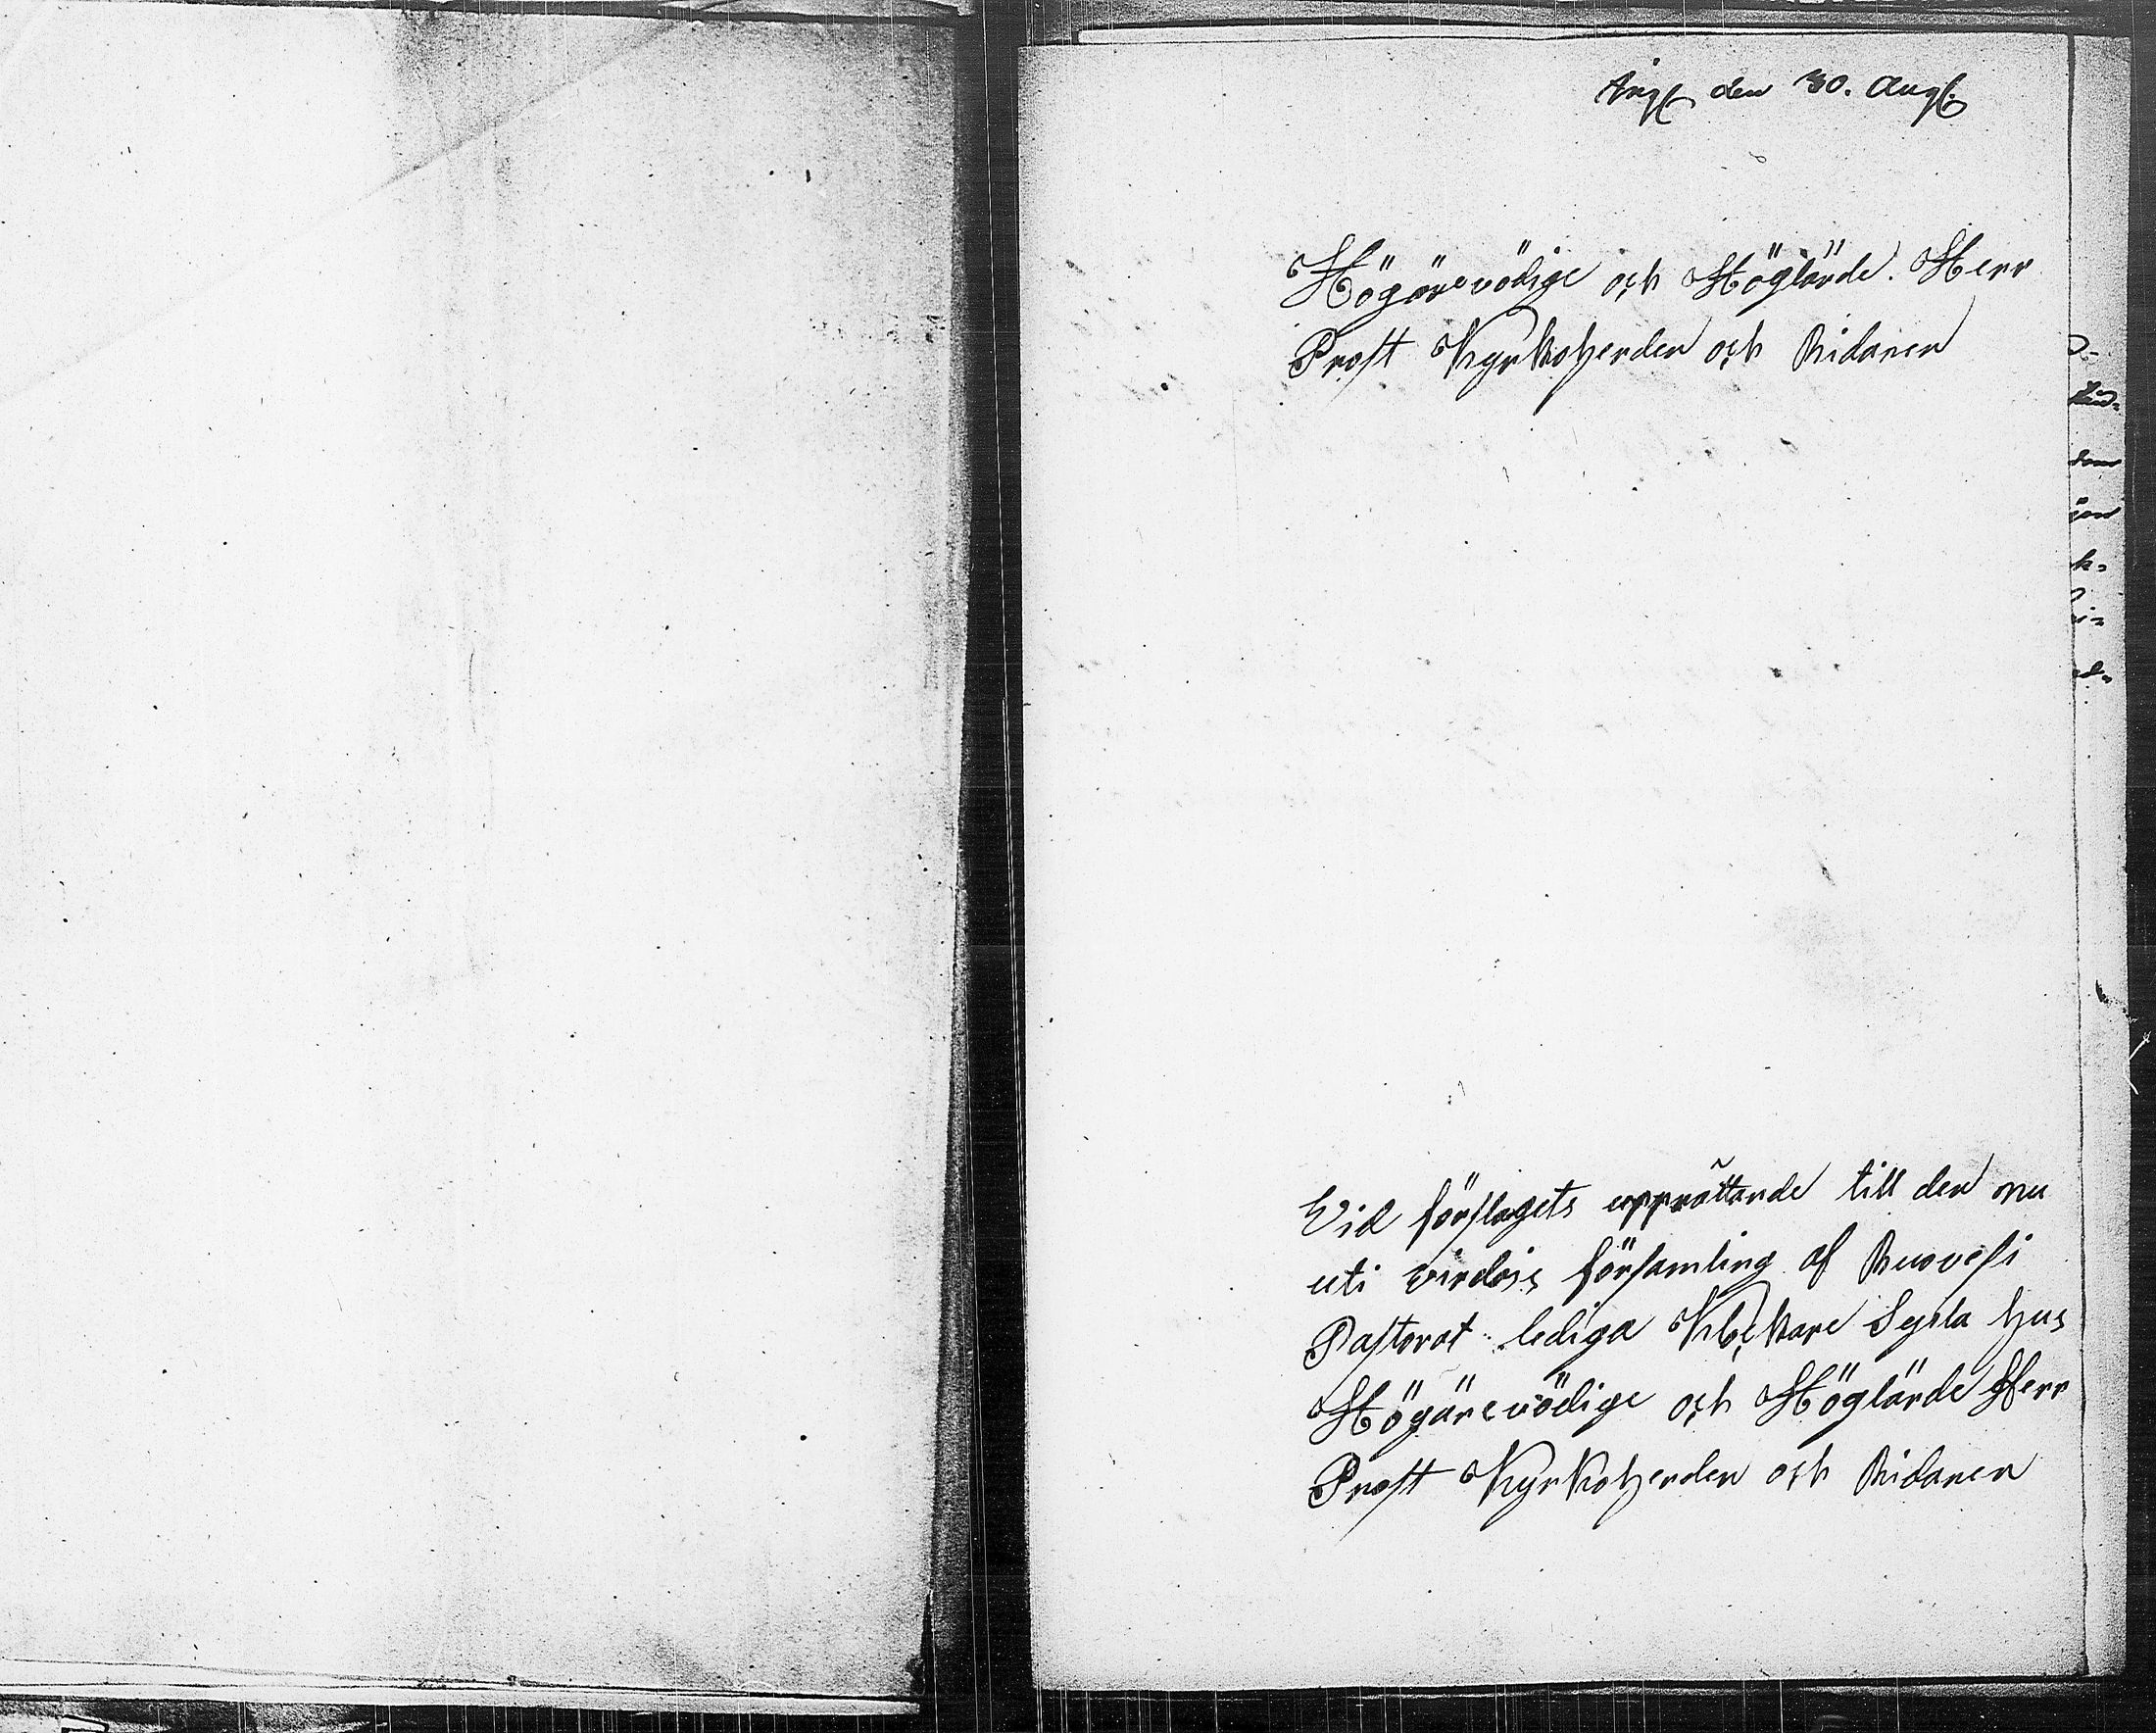 Ingf den 30. Augf.
Högärevödige och Höglärde. Herr
Prost Kyrkoherden och Ridaren
Vid förslagets upprättande till den nu
uti virdois församling af Ruovesi
Pastorat lediga Klockare Sysla hus
Högärevödige och Höglärde Herr
Prost Kyrkoherden och Ridaren